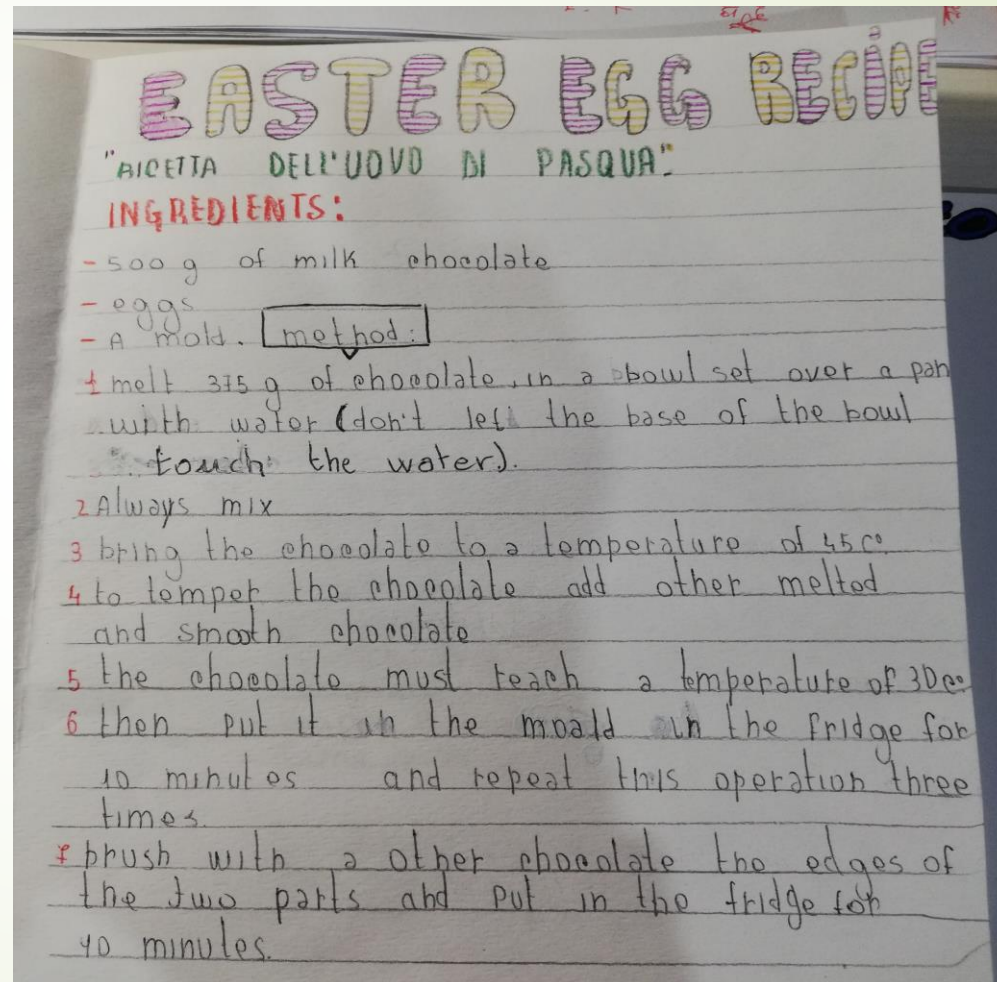 EASTER EGG RECIPE
"RICETTA DELL'UOVO DI PASQUA".
INGREDIENTS:
- 500 g of milk chocolate
- eggs
- A mold. method:
1 melt 375 g of chocolate, in a bowl set over a pan
with water (don't let the base of the bowl
touch the water).
2 Always mix
3 bring the chocolate to a temperature of 45 c°
4 to temper the chocolate add other melted
and smooth chocolate
5 the chocolate must reach a temperature of 30 c°
6 then put it in the moald in the fridge for
10 minutes and repeat this operation three
times.
7 brush with a other chocolate the edges of
the two parts and put in the fridge for
10 minutes.